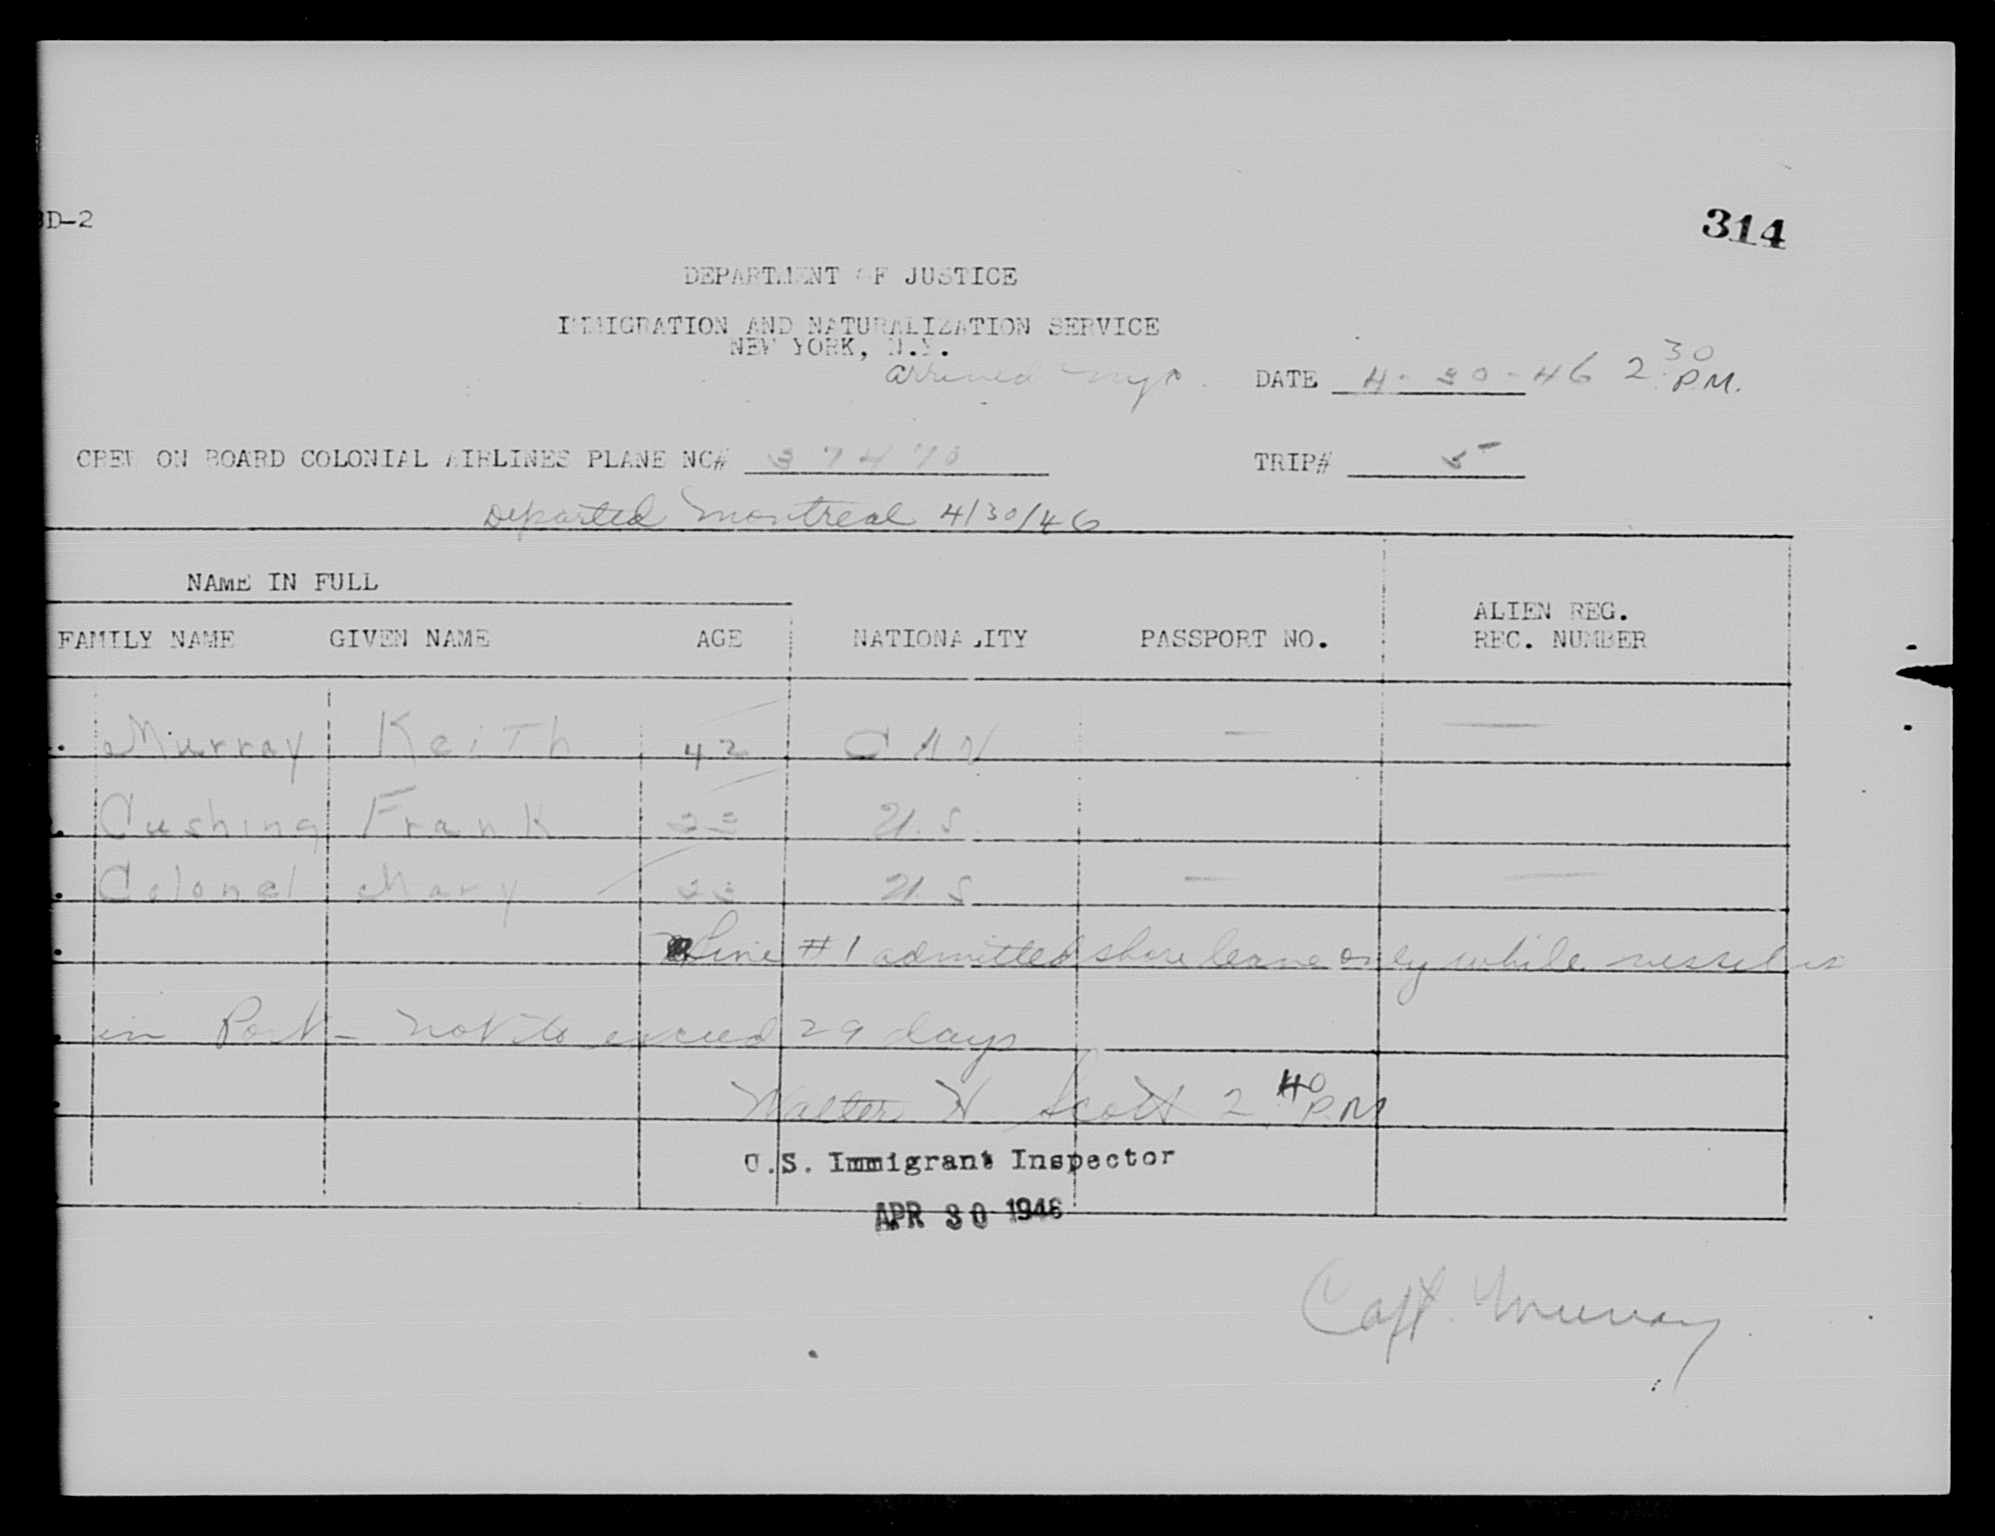 D-2
314
DEPARTMENT OF JUSTICE
IMMIGRATION AND NATURALIZATION SERVICE
NEW YORK, N.Y.
arrived DATE 4-30-46 2 30 P.M.
CREW ON BOARD COLONIAL AIRLINES PLANE NC# 37470 TRIP# 5
Departed Montreal 4/30/46
NAME IN FULL
ALIEN REG.
FAMILY NAME GIVEN NAME AGE NATIONALITY PASSPORT NO. REC. NUMBER
Murray Keith 42 CAN — —
Cushing Frank U.S.
Colonel Mary U.S — —
Line #1 admitted shore leave only while vessel is
in Port - not to exceed 29 days
Walter H Scott 2 40 P.M
U.S. Immigrant Inspector
APR 30 1946
Capt. Murray